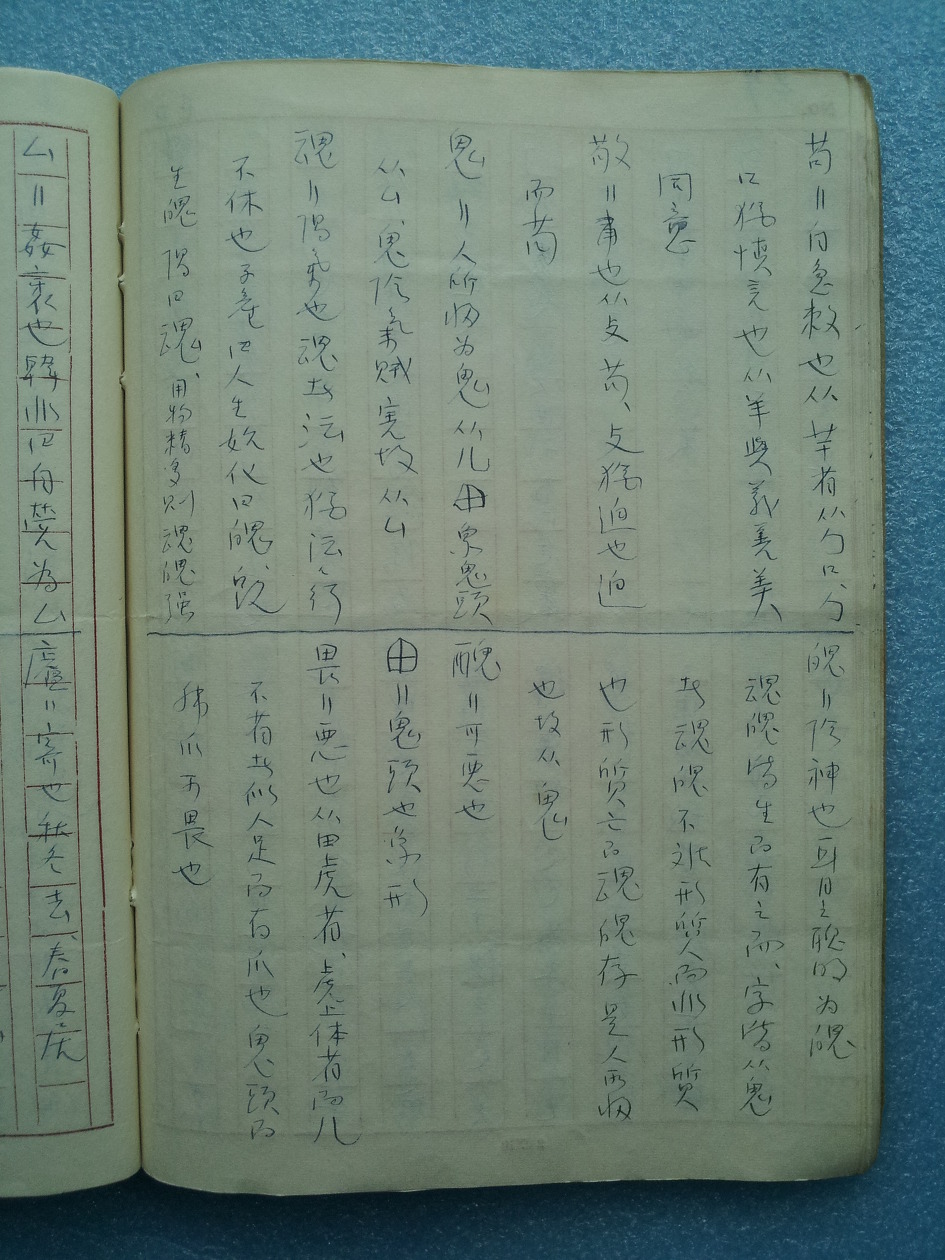 苟〃自急敕也从芉省从勹口、勹
口猶慎言也从羊與義善美
同意
敬〃肅也从攴苟、攴猶迫也迫
而苟
鬼〃人所归为鬼从儿田象鬼頭
从厶、鬼陰氣賊害故从厶
魂〃陽氣也魂者沄也猶沄々行
不休也子產曰人生始化曰魄、既
生魄陽曰魂、用物精多则魂魄强
魄〃陰神也耳目之聰明为魄
魂魄皆生而有之而、字皆从鬼
者魂魄不離形質人而非形質
也形質亡而魂魄存是人所归
也故从鬼
醜〃可惡也
田〃鬼頭也象形
畏〃惡也从田虎省、虎上体省而儿
不省者似人足而有爪也鬼頭而
爪可畏也
厶〃姦衺也韓非曰自營为厶
廬〃寄也秋冬去、春夏居